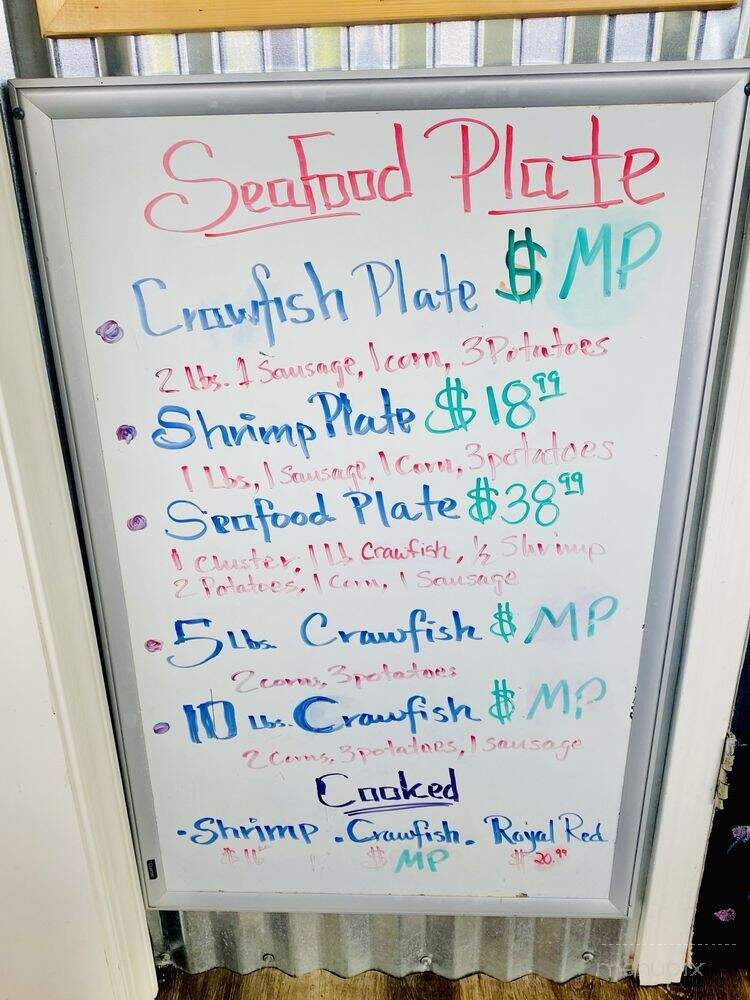 Seafood Plate
Crawfish Plate $ MP
2 Lbs. 1 Sausage, 1 corn, 3 Potatoes
Shrimp Plate $18.99
1 Lbs, 1 Sausage, 1 Corn, 3 potatoes
Seafood Plate $38.99
1 Cluster, 1 Lb Crawfish, ½ Shrimp
2 Potatoes, 1 Corn, 1 Sausage
5 Lbs. Crawfish $ MP
2 corns, 3 potatoes
10 Lbs. Crawfish $ MP
2 Corns, 3 potatoes, 1 sausage
Cooked
· Shrimp . Crawfish . Royal Red
$ MP $ 20.99
menupix